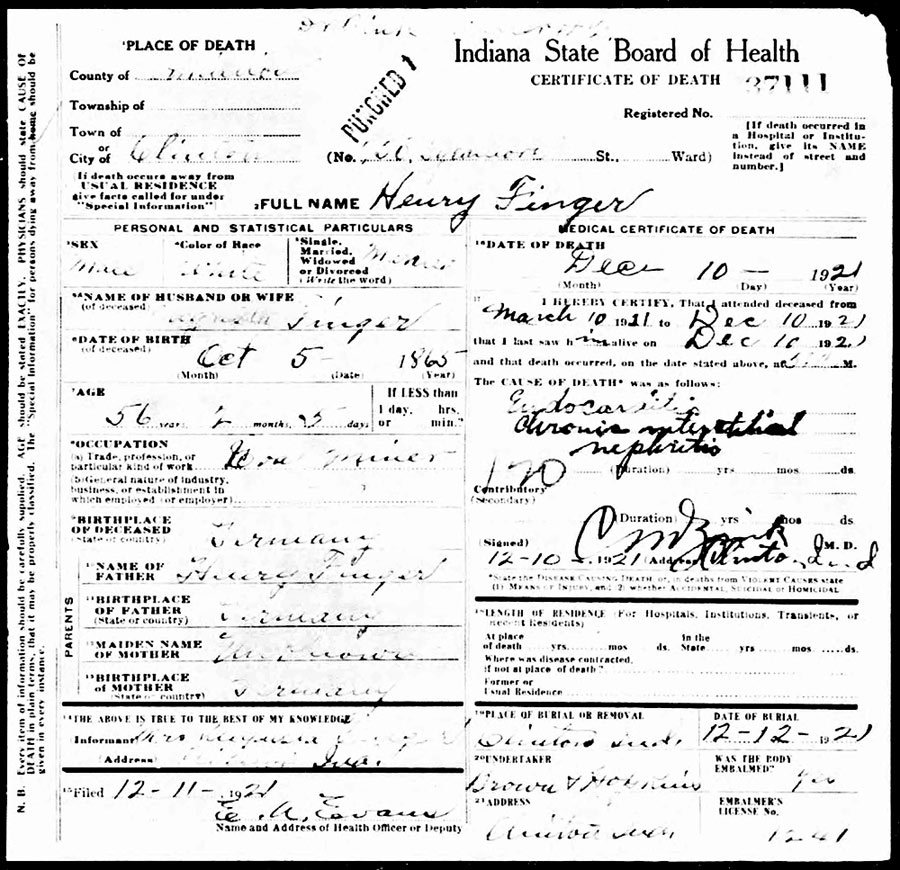 ¹PLACE OF DEATH
County of
Township of
Town of
or
City of Clinton
[If death occurs away from
USUAL RESIDENCE
give facts called for under
"Special Information"]
PUNCHED 1
Indiana State Board of Health
CERTIFICATE OF DEATH
37111
Registered No.
(No. St., Ward)
[If death occurred in
a Hospital or Institu-
tion, give its NAME
instead of street and
number.]
²FULL NAME Henry Finger
PERSONAL AND STATISTICAL PARTICULARS
³SEX
Male
⁴Color of Race
White
⁵Single,
Married,
Widowed
or Divorced
(Write the word)
Married
NAME OF HUSBAND OR WIFE
(of deceased)
Finger
⁶DATE OF BIRTH
(of deceased)
Oct 5- 1865
(Month) (Date) (Year)
⁷AGE
56 years 2 months 5 days
If LESS than
1 day, hrs.
or min.?
⁸OCCUPATION
(a) Trade, profession, or
particular kind of work Coal Miner
(b) General nature of industry,
business, or establishment in
which employed (or employer)
⁹BIRTHPLACE
OF DECEASED
(State or country)
Germany
PARENTS
¹⁰NAME OF
FATHER Henry Finger
¹¹BIRTHPLACE
OF FATHER
(State or country)
Germany
¹²MAIDEN NAME
OF MOTHER Unknown
¹³BIRTHPLACE
OF MOTHER
(State or country)
Germany
¹⁴THE ABOVE IS TRUE TO THE BEST OF MY KNOWLEDGE
Informant Mrs Augusta Finger
(Address) Ind.
¹⁵Filed 12-11- 1921
E. A. Evans
Name and Address of Health Officer or Deputy
MEDICAL CERTIFICATE OF DEATH
¹⁶DATE OF DEATH
Dec 10 - 1921
(Month) (Day) (Year)
¹⁷I HEREBY CERTIFY, That I attended deceased from
March 10 1921 to Dec 10 1921
that I last saw him alive on Dec 10 1921
and that death occurred, on the date stated above, at M.
The CAUSE OF DEATH* was as follows:
Endocarditis
Chronic interstitial
nephritis
(Duration) yrs mos ds.
Contributory
(Secondary)
(Duration) yrs mos ds.
(Signed) M. D.
12-10- 1921 (Address) Clinton Ind
*State the DISEASE CAUSING DEATH or, in deaths from VIOLENT CAUSES state
(1) MEANS OF INJURY, and (2) whether ACCIDENTAL, SUICIDAL or HOMICIDAL
¹⁸LENGTH OF RESIDENCE (For Hospitals, Institutions, Transients, or
Recent Residents)
At place
of death yrs. mos ds.
In the
State yrs. mos. ds.
Where was disease contracted,
if not at place of death?
Former or
Usual Residence
¹⁹PLACE OF BURIAL OR REMOVAL
Clinton Ind.
DATE OF BURIAL
12-12- 1921
²⁰UNDERTAKER
Brown & Hopkins
WAS THE BODY
EMBALMED? Yes
²¹ADDRESS
Clinton Ind.
EMBALMER'S
LICENSE No.
1241
N. B. Every item of information should be carefully supplied. AGE should be stated EXACTLY. PHYSICIANS should state CAUSE OF
DEATH in plain terms, that it may be properly classified. The "Special Information" for persons dying away from home should be
given in every instance.